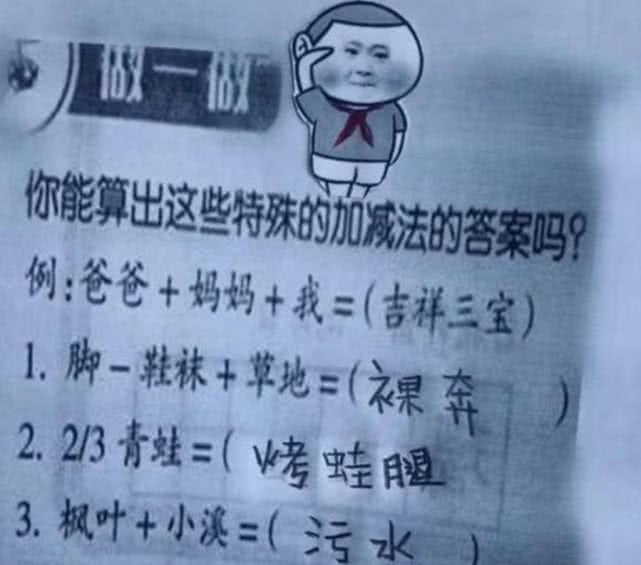 做一做
你能算出这些特殊的加减法的答案吗?
例:爸爸+妈妈+我=(吉祥三宝)
1. 脚-鞋袜+草地=(裸奔)
2. 2/3青蛙=(烤蛙腿
3. 枫叶+小溪=(污水)